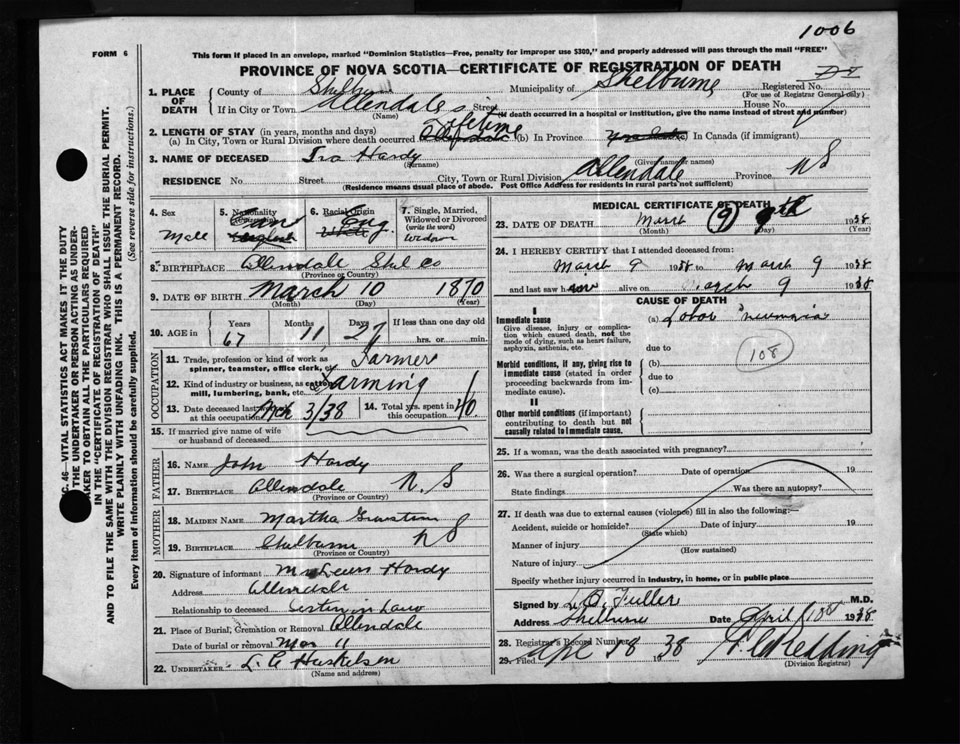 1006
FORM 6
This form if placed in an envelope, marked "Dominion Statistics—Free, penalty for improper use $300," and properly addressed will pass through the mail "FREE"
PROVINCE OF NOVA SCOTIA—CERTIFICATE OF REGISTRATION OF DEATH
1. PLACE OF DEATH
County of Municipality of Shelburne Registered No.
(For use of Registrar General only)
If in City or Town Allendale Street House No.
(Name) (If death occurred in a hospital or institution, give the name instead of street and number)
2. LENGTH OF STAY (in years, months and days)
(a) In City, Town or Rural Division where death occurred Lifetime (b) In Province In Canada (if immigrant)
3. NAME OF DECEASED Ira Hardy
(Surname) (Given name or names)
RESIDENCE No Street City, Town or Rural Division Allendale Province N S
(Residence means usual place of abode. Post Office Address for residents in rural parts not sufficient)
4. Sex
Male
5. Nationality
6. Racial Origin
Eng
7. Single, Married, Widowed or Divorced
(write the word)
8. BIRTHPLACE Allendale Shel Co
(Province or Country)
9. DATE OF BIRTH March 10 1870
(Month) (Day) (Year)
10. AGE in Years Months Days If less than one day old
67 11 27 hrs. or min.
OCCUPATION
11. Trade, profession or kind of work as spinner, teamster, office clerk, etc. Farmer
12. Kind of industry or business, as cotton mill, lumbering, bank, etc. Farming
13. Date deceased last worked at this occupation 3/38
14. Total yrs. spent in this occupation 40
15. If married give name of wife or husband of deceased
FATHER
16. NAME John Hardy
17. BIRTHPLACE Allendale N. S
(Province or Country)
MOTHER
18. MAIDEN NAME Martha
19. BIRTHPLACE Shelburne N S
(Province or Country)
20. Signature of informant Lewis Hardy
Address Allendale
Relationship to deceased in Law
21. Place of Burial, Cremation or Removal Allendale
Date of burial or removal Mar 11
22. UNDERTAKER
(Name and address)
MEDICAL CERTIFICATE OF DEATH
23. DATE OF DEATH March 9 9th 1938
(Month) (Day) (Year)
24. I HEREBY CERTIFY that I attended deceased from:
March 9 1938 to March 9 1938
and last saw h alive on March 9 1938
CAUSE OF DEATH
I
Immediate cause
Give disease, injury or complication which caused death, not the mode of dying, such as heart failure, asphyxia, asthenia, etc.
(a) Lobar Pneumonia
due to
108
Morbid conditions, if any, giving rise to immediate cause (stated in order proceeding backwards from immediate cause).
(b)
due to
(c)
II
Other morbid conditions (if important) contributing to death but not causally related to immediate cause.
25. If a woman, was the death associated with pregnancy?
26. Was there a surgical operation? Date of operation 19
State findings Was there an autopsy?
27. If death was due to external causes (violence) fill in also the following:—
Accident, suicide or homicide? Date of injury 19
(State which)
Manner of injury
(How sustained)
Nature of injury
Specify whether injury occurred in industry, in home, or in public place
Signed by Fuller M.D.
Address Shelburne Date April 1938
28. Registrar's Record Number
29. Filed 19 38 Redding
(Division Registrar)
C. 46—VITAL STATISTICS ACT MAKES IT THE DUTY
THE UNDERTAKER OR PERSON ACTING AS UNDER-
TAKER TO OBTAIN ALL THE PARTICULARS REQUIRED
IN THE "CERTIFICATE OF REGISTRATION OF DEATH"
AND TO FILE THE SAME WITH THE DIVISION REGISTRAR WHO SHALL ISSUE THE BURIAL PERMIT.
WRITE PLAINLY WITH UNFADING INK. THIS IS A PERMANENT RECORD.
Every item of information should be carefully supplied. (See reverse side for instructions.)